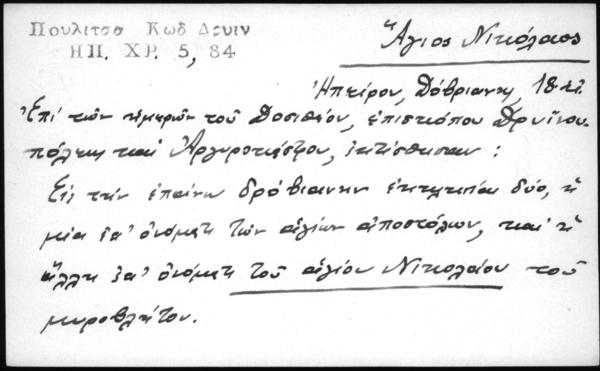 Πουλιτσα Κωδ Δρυιν
ΗΠ. ΧΡ. 5, 84
Ἅγιος Νικόλαος
Ἠπείρου, Δόβριανη,
Ἐπί τῶν ἡμερῶν τοῦ Δοσιθέου, ἐπισκόπου Δρυϊνου-
πόλεως καί Ἀργυροκάστρου, ἐκτίσθησαν:
Εἰς τήν ἐπάνω Δρόβιανην ἐκκλησίαι δύο, ἡ
μία ἐπ' ὀνόματι τῶν ἁγίων ἀποστόλων, καί ἡ
ἄλλη ἐπ' ὀνόματι τοῦ ἁγίου Νικολάου τοῦ
μυροβλήτου.